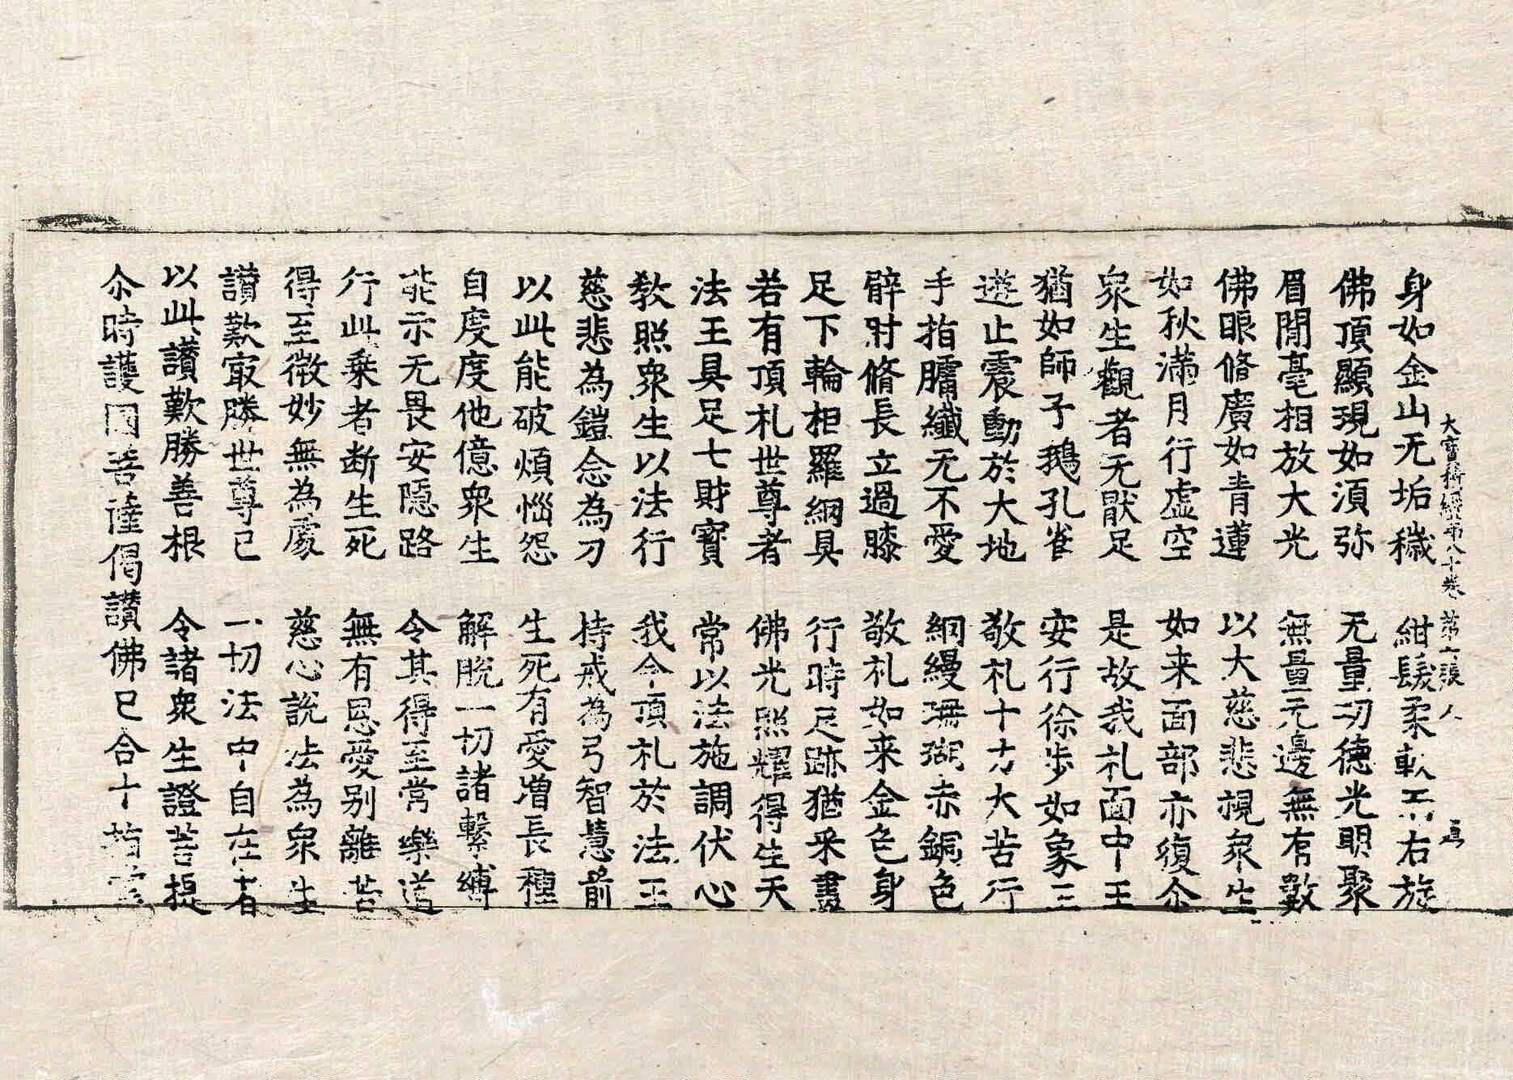 大寶積經第八十卷 第二張 人
身如金山无垢穢 紺髮柔軟而右旋
佛頂顯現如須弥 无量功德光明聚
眉閒毫相放大光 無量无邊無有數
佛眼脩廣如青蓮 以大慈悲視衆生
如秋滿月行虛空 如来面部亦復尒
衆生觀者无猒足 是故我礼面中王
猶如師子鵝孔雀 安行徐步如象王
遊止震動於大地 敬礼十力大苦行
手指𦟛纖无不愛 網縵珊瑚赤銅色
臂肘脩長立過膝 敬礼如来金色身
足下輪相羅網具 行時足跡猶采畫
若有頂礼世尊者 佛光照耀得生天
法王具足七財寳 常以法施調伏心
教照衆生以法行 我今頂礼於法王
慈悲為鎧念為刀 持戒為弓智慧前
以此能破煩惱怨 生死有愛增長種
自度度他億衆生 解脫一切諸繫縛
能示无畏安隱路 令其得至常樂道
行此乗者断生死 無有恩愛别離苦
得至微妙無為處 慈心說法為衆生
讃歎㝡勝世尊已 一切法中自在者
以此讃歎勝善根 令諸衆生證菩提
尒時護國菩薩偈讃佛已合十指掌